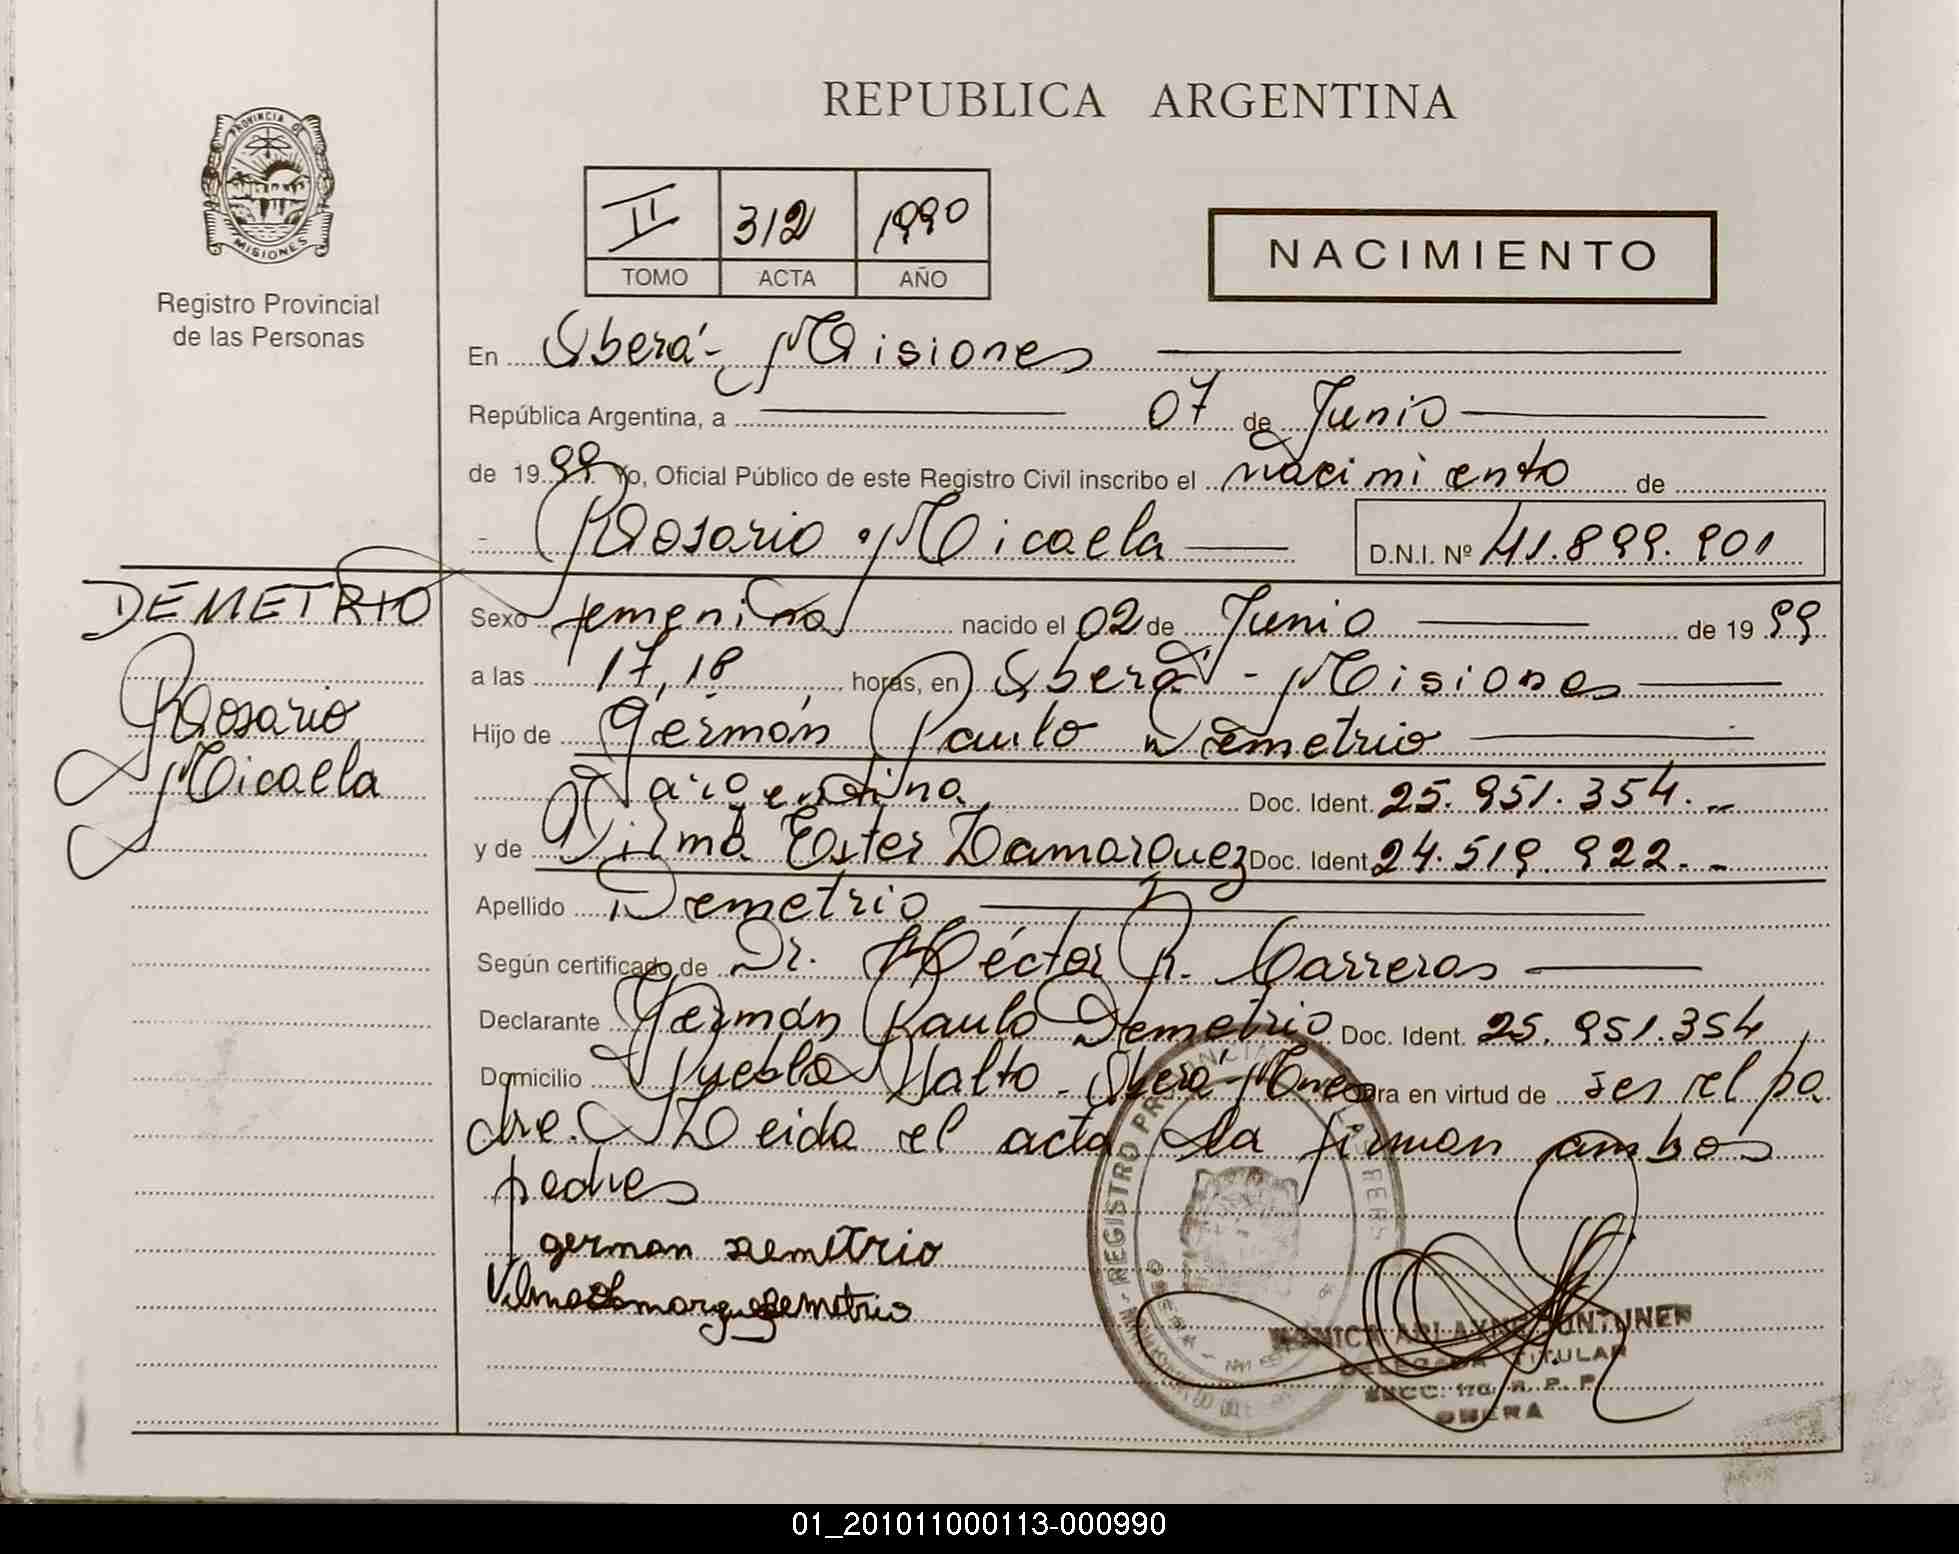 REPUBLICA ARGENTINA
PROVINCIA DE
MISIONES
Registro Provincial
de las Personas
II 312 1990
TOMO ACTA AÑO
NACIMIENTO
En Oberá - Misiones
República Argentina, a 07 de Junio
de 1999 Yo, Oficial Público de este Registro Civil inscribo el nacimiento de
Rosario Micaela D.N.I. Nº 41.899.901
DEMETRIO
Rosario
Micaela
Sexo femenino nacido el 02 de Junio de 1999
a las 17,18 horas, en Oberá - Misiones
Hijo de Germán Paulo Demetrio
argentina Doc. Ident. 25.951.354.-
y de Vilma Ester Damarquez Doc. Ident. 24.519.922.-
Apellido Demetrio
Según certificado de Dr. Héctor R. Carreras
Declarante Germán Paulo Demetrio Doc. Ident. 25.951.354
Domicilio Pueblo Salto - Oberá - Mnes ra en virtud de ser el pa
dre. Leida el acta la firman ambos
padres
german Demetrio
Vilma Demetrio
REGISTRO
DELEGADA TITULAR
SECC. 1ra. R. P. P.
OBERA
01_201011000113-000990